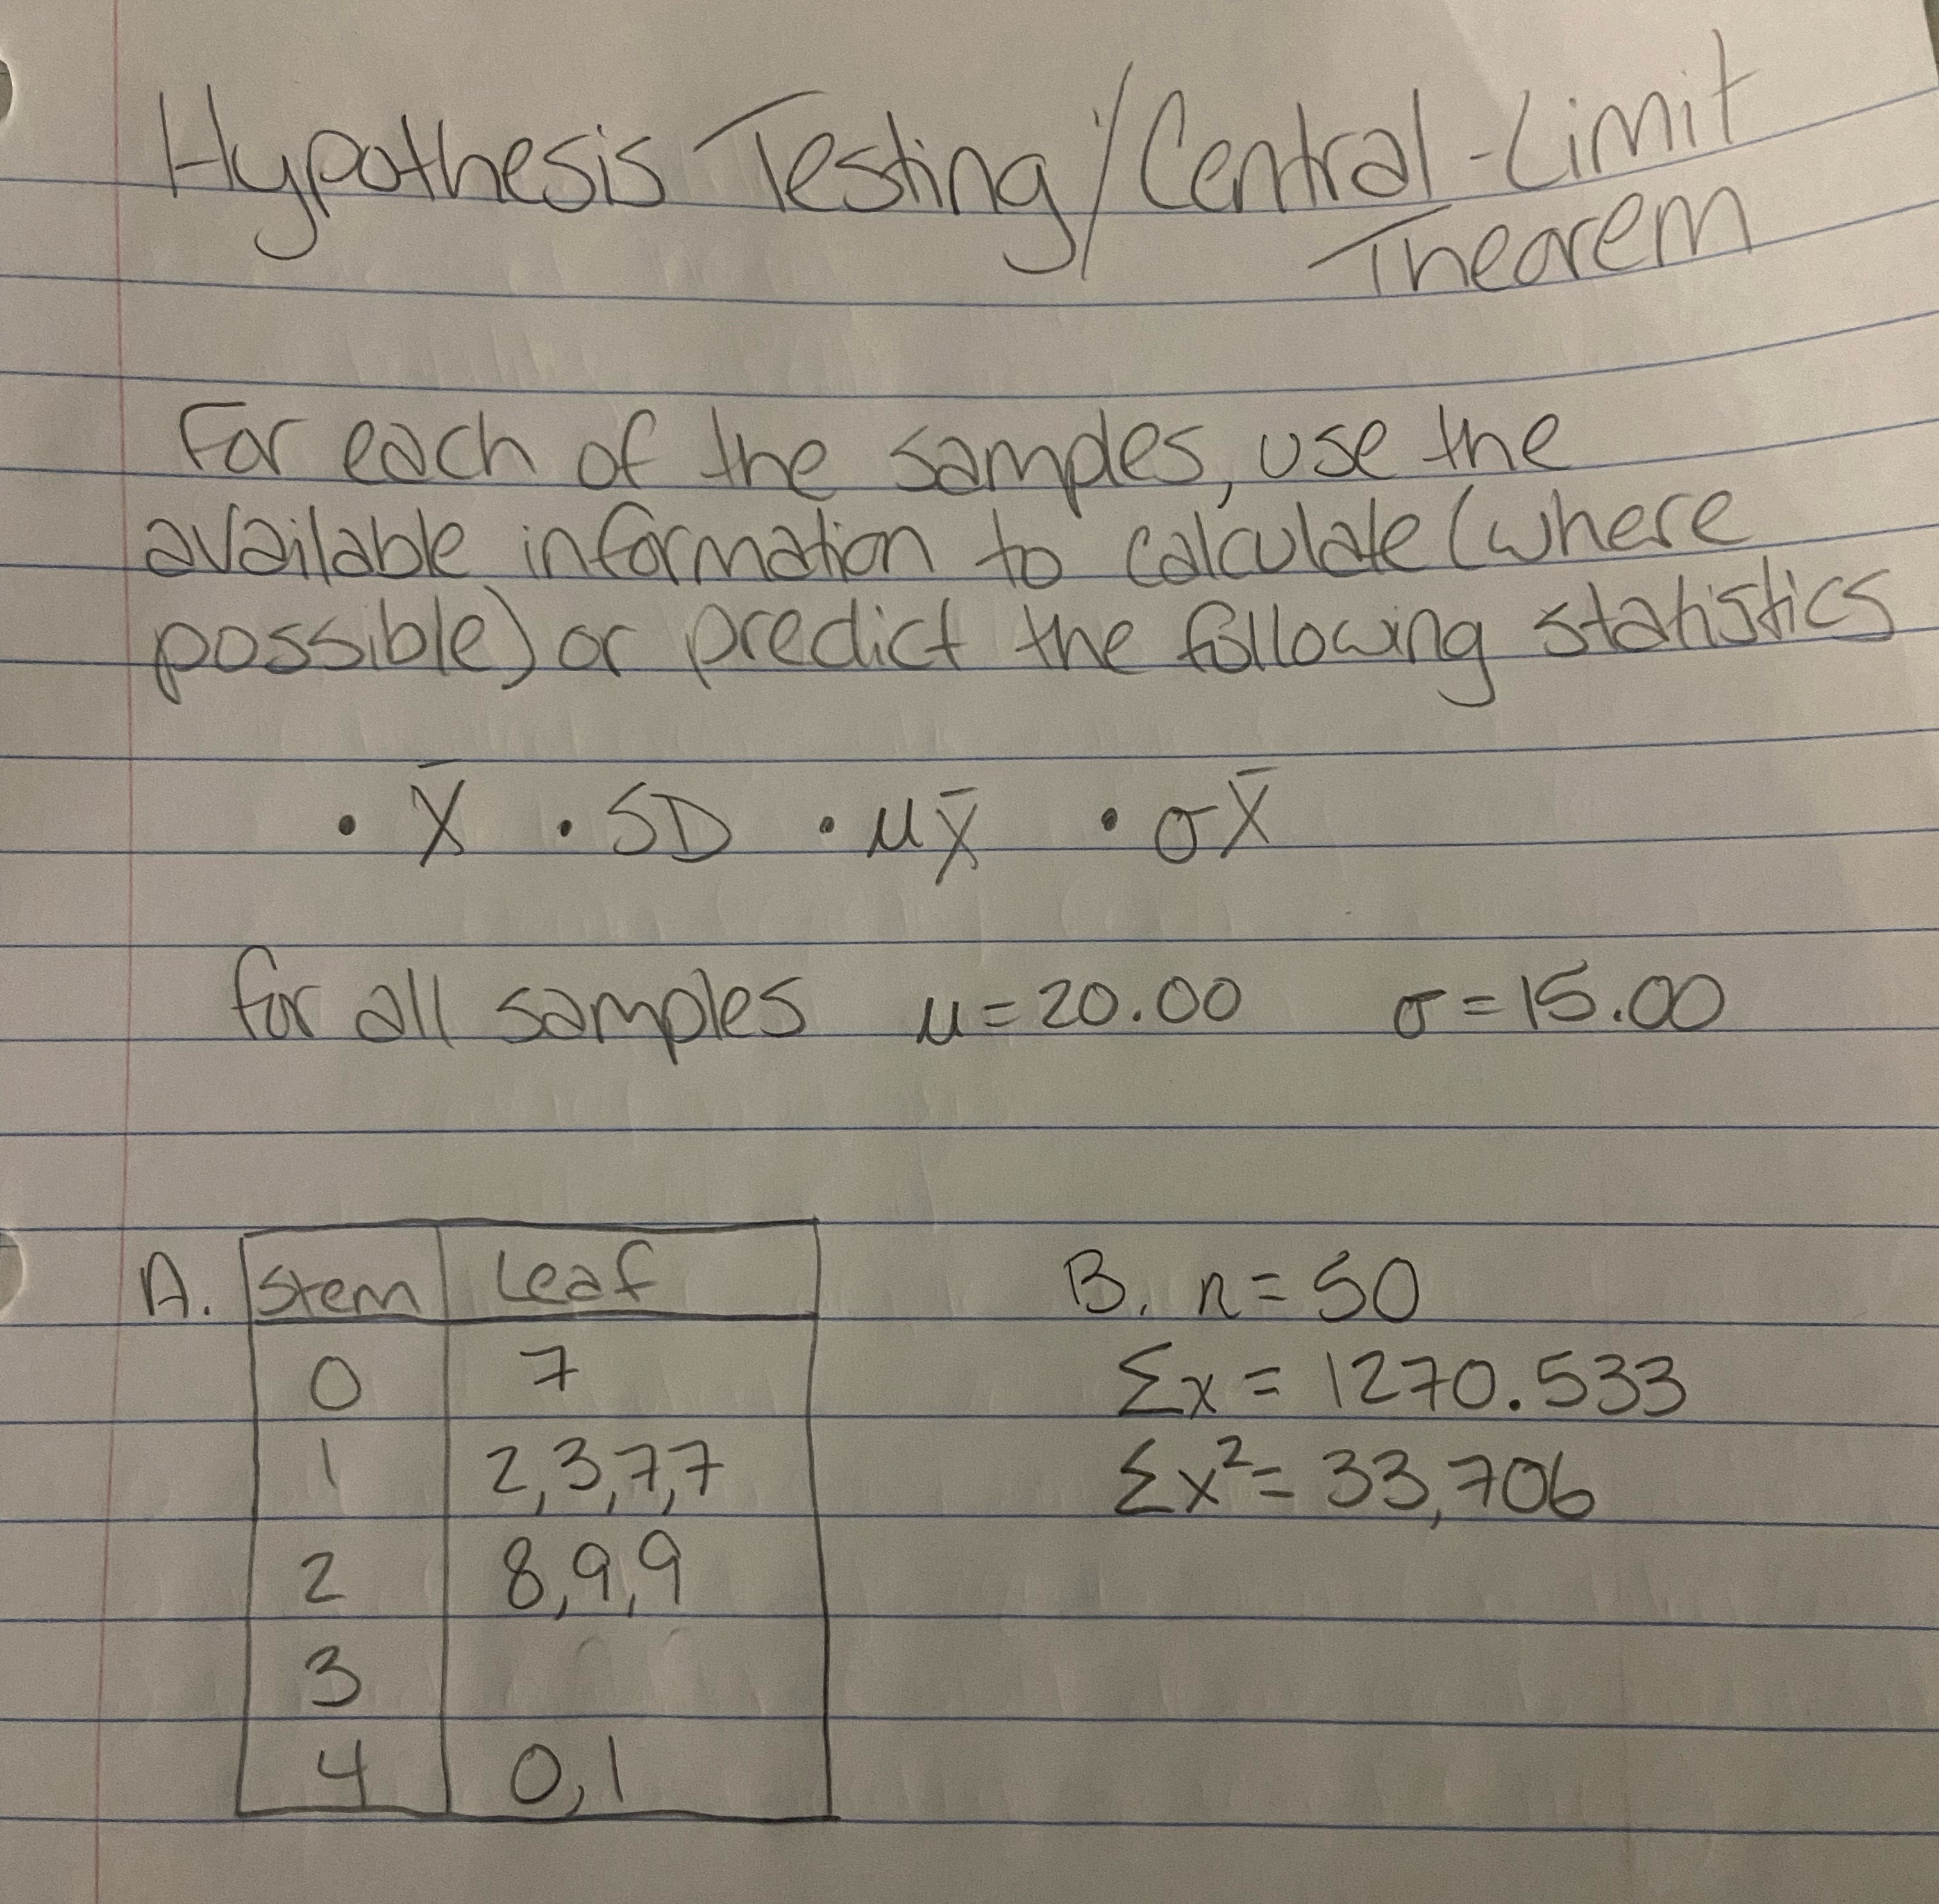 Hypothesis Testing/Central-Limit
Theorem
For each of the samples, use the
available information to calculate (where
possible) or predict the following statistics
• X̄ • SD • μx̄ • σX̄
for all samples μ=20.00 σ=15.00
A.
Stem Leaf
0 7
1 2,3,7,7
2 8,9,9
3
4 0,1
B. n=50
Σx = 1270.533
Σx²= 33,706